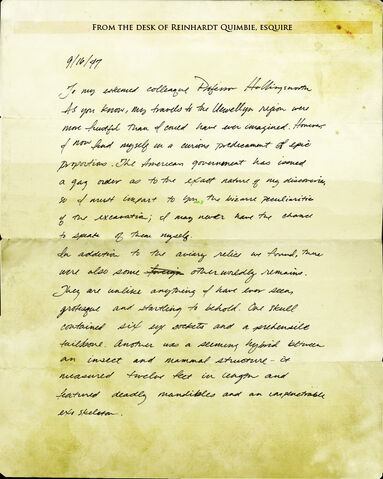 FROM THE DESK OF REINHARDT QUIMBIE, ESQUIRE
9/16/47
To my esteemed colleague Professor Hollingsworth
As you know, my travels to the Llewellyn region were
more fruitful than I could have ever imagined. However
I now find myself in a curious predicament of epic
proportions. The American government has issued
a gag order as to the exact nature of my discoveries,
so I must impart to you, the bizarre peculiarities
of the excavation; I may never have the chance
to speak of them myself.
In addition to the aviary relics we found, there
were also some foreign otherworldly remains.
They are unlike anything I have ever seen,
grotesque and startling to behold. One skull
contained six eye sockets and a prehensile
tailbone. Another was a seeming hybrid between
an insect and mammal structure - it
measured twelve feet in length and
featured deadly mandibles and an impenetrable
exo skeleton.